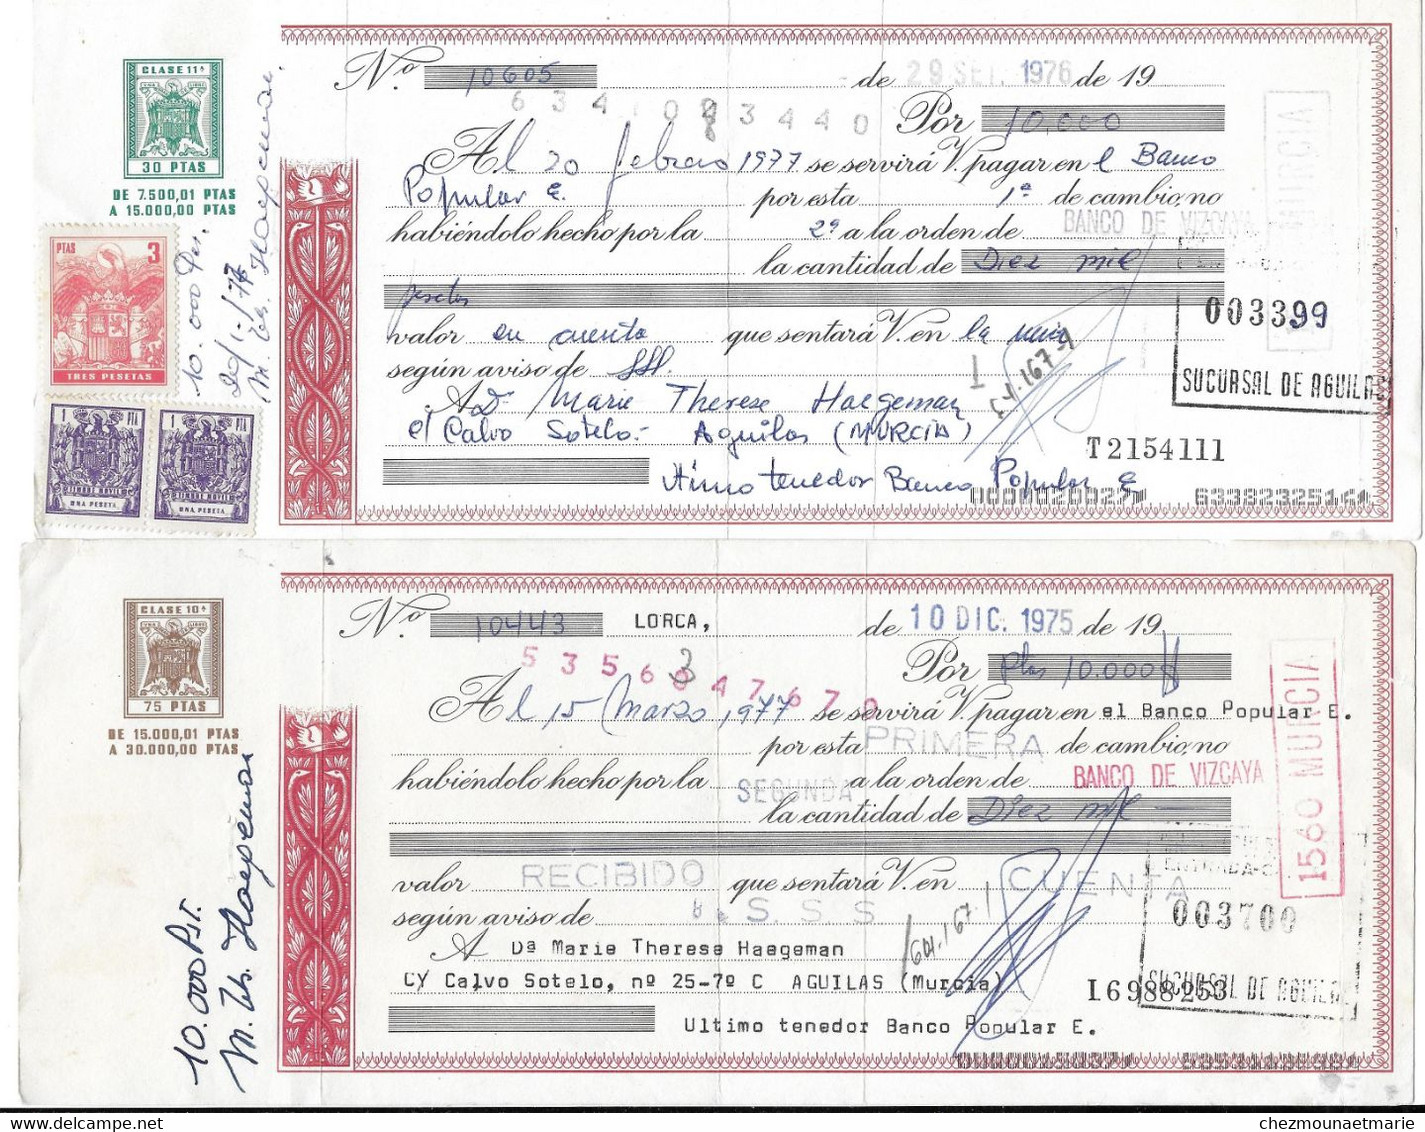 CLASE 11ª
30 PTAS
DE 7.500,01 PTAS
A 15.000,00 PTAS
PTAS 3
TRES PESETAS
1 PTA
TIMBRE MOVIL
UNA PESETA
1 PTA
TIMBRE MOVIL
UNA PESETA
10.000 Pts.
Nº 10605 de 29 SET. 1976 de 19
Por 10.000
Al 20 febrero 1977 se servirá V. pagar en el Banco
Popular E. por esta 1ª de cambio, no
habiéndolo hecho por la 2ª a la orden de BANCO DE VIZCAYA
la cantidad de Diez mil
pesetas
valor en cuenta que sentará V. en la
según aviso de SSS.
A Dª Marie Therese Haegeman
cl Calvo Sotelo.- Aguilas (MURCIA)
Ultimo tenedor Banco Popular E
MURCIA
003399
SUCURSAL DE AGUILAS
T2154111
CLASE 10ª
75 PTAS
DE 15.000,01 PTAS
A 30.000,00 PTAS
10.000 P.T.
Nº 10443 LORCA, de 10 DIC. 1975 de 19
Por Ptas 10.000
Al 15 Marzo 1977 se servirá V. pagar en el Banco Popular E.
por esta PRIMERA de cambio, no
habiéndolo hecho por la SEGUNDA a la orden de BANCO DE VIZCAYA
la cantidad de Diez mil
valor RECIBIDO que sentará V. en CUENTA
según aviso de S. S. S.
A Dª Marie Therese Haegeman
CY Calvo Sotelo, nº 25-7º C AGUILAS (Murcia)
Ultimo tenedor Banco Popular E.
1560 MURCIA
003700
SUCURSAL DE AGUILAS
I6988253
chezmounaetmarie